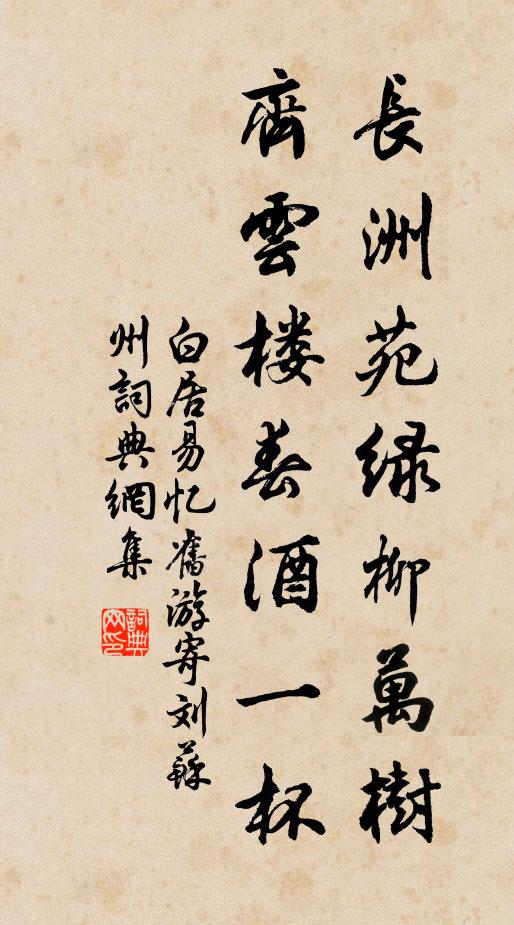 長洲苑緑柳萬樹
齊雲楼春酒一杯
白居易忆舊游寄刘蘇
州詞典網集
詞典
网印